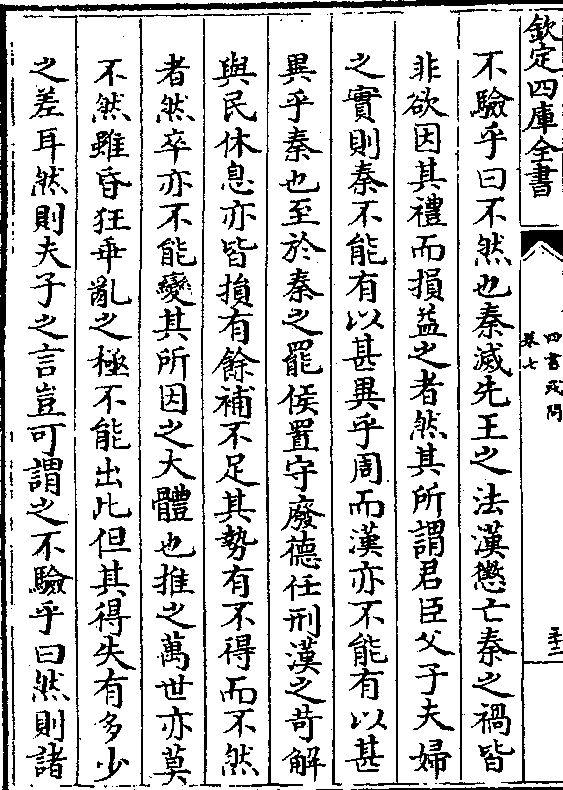 欽定四庫全書
四書或問
卷七
不驗乎曰不然也秦滅先王之法漢懲亡秦之禍皆
非欲因其禮而損益之者然其所謂君臣父子夫婦
之實則秦不能有以甚異乎周而漢亦不能有以甚
異乎秦也至於秦之罷侯置守廢德任刑漢之苛解
與民休息亦皆損有餘補不足其勢有不得而不然
者然卒亦不能變其所因之大體也推之萬世亦莫
不然雖昏狂乖亂之極不能出此但其得失有多少
之差耳然則夫子之言豈可謂之不驗乎曰然則諸